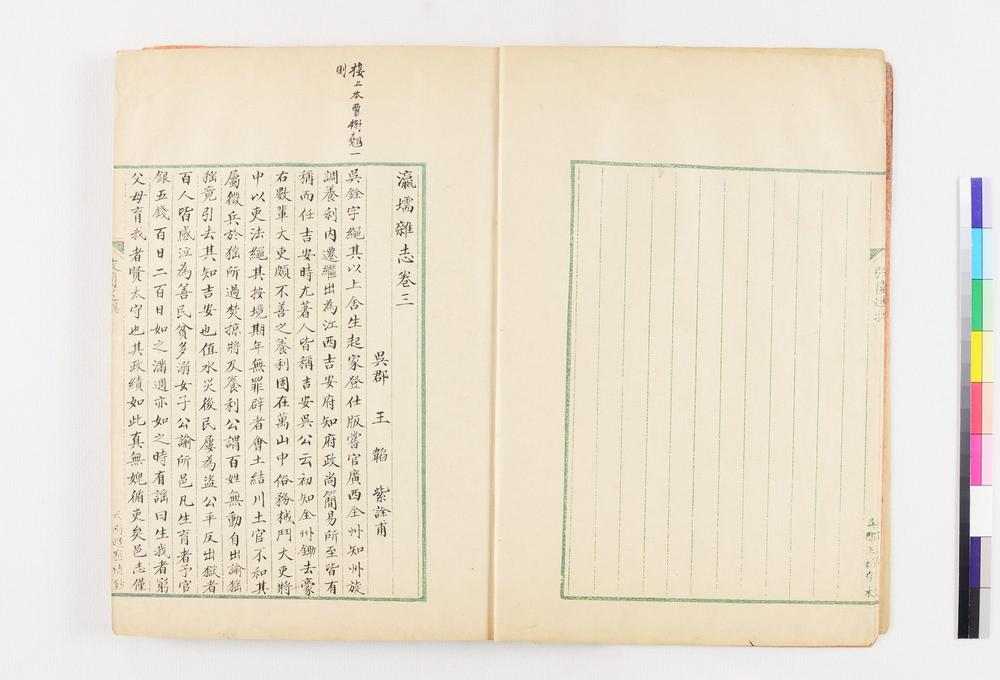 樓上本曹樹翹一
則
瀛壖雜志卷三
吳郡 王 韜 紫詮甫
吳銓字繩其以上舍生起家登仕版嘗官廣西全州知州旋
調養利內遷繼出為江西吉安府知府政尚簡易所至皆有
稱而任吉安時尤著人皆稱吉安吳公云初知全州鋤去豪
右數輩大吏頗不善之養利固在萬山中俗務械鬥大吏將
中以吏法繩其按境期年無罪辟者會土結川土官不和其
屬徵兵於猺所過焚掠將及養利公謂百姓無動自出諭猺
猺竟引去其知吉安也值水災後民屢為盜公平反出獄者
百人皆感泣為善民貧多溺女子公諭所邑凡生育者予官
銀五錢百日二百日如之滿週亦如之時有謠曰生我者窮
父母育我者賢太守也其政績如此真無媿循吏矣邑志僅